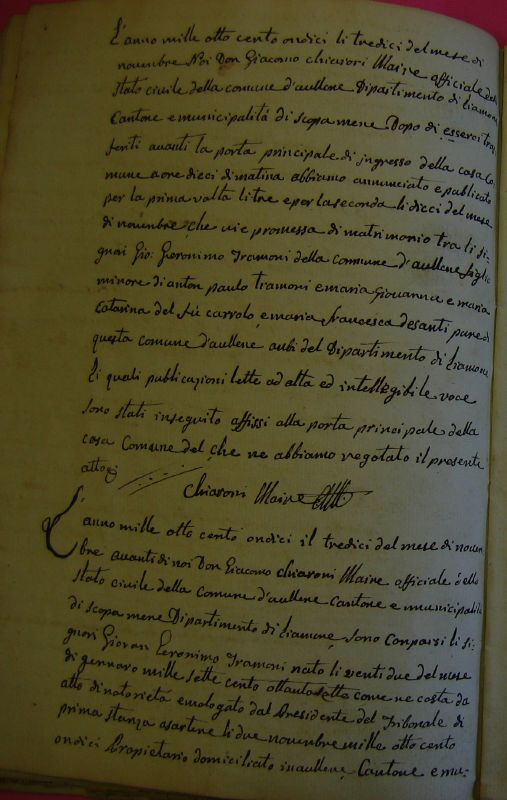 L'anno mille otto cento ondici li tredici del mese di
novembre Noi Don Giacomo Chiaroni Maire officiale dello
stato civile della comune d'aullene Dipartimento di liamone
Cantone e municipalità di scopa mene Dopo di esserci tras
feriti avanti la porta principale di ingresso della casa Co
mune a ore dieci di matina abbiamo annunciato e publicato
per la prima volta li tre e per la seconda li dieci del mese
di novembre che vi è promessa di matrimonio tra li si
gnori Gio: Geronimo Tramoni della commune d'aullene figlio
minore di anton paulo tramoni e maria Giovanna e maria
Catarina del fù carrolo, e maria francesca desanti pure di
questa comune d'aullene anbi del Dipartimento di liamone
li quali publicazioni lette ad alta ed intelligibile voce
sono stati inseguito affissi alla porta principale della
casa Comune del che ne abbiamo rogotato il presente
atto
Chiaroni Maire
L'anno mille otto cento ondici il tredici del mese di novem
bre avanti di noi Don Giacomo Chiaroni Maire officiale dello
stato civile della Comune d'aullene Cantone e municipalità
di scopa mene Dipartimento di liamone, sono conparsi li si:
gnori Giovan Geronimo Tramoni nato li venti due del mese
di gennaro mille sette cento ottanta sette come ne costa da
atto di notorietà emologato dal Presidente del Tribonale di
prima stanza a sartene li due novembre mille otto cento
ondici Propietario domiciliato in aullene, Cantone e mu: